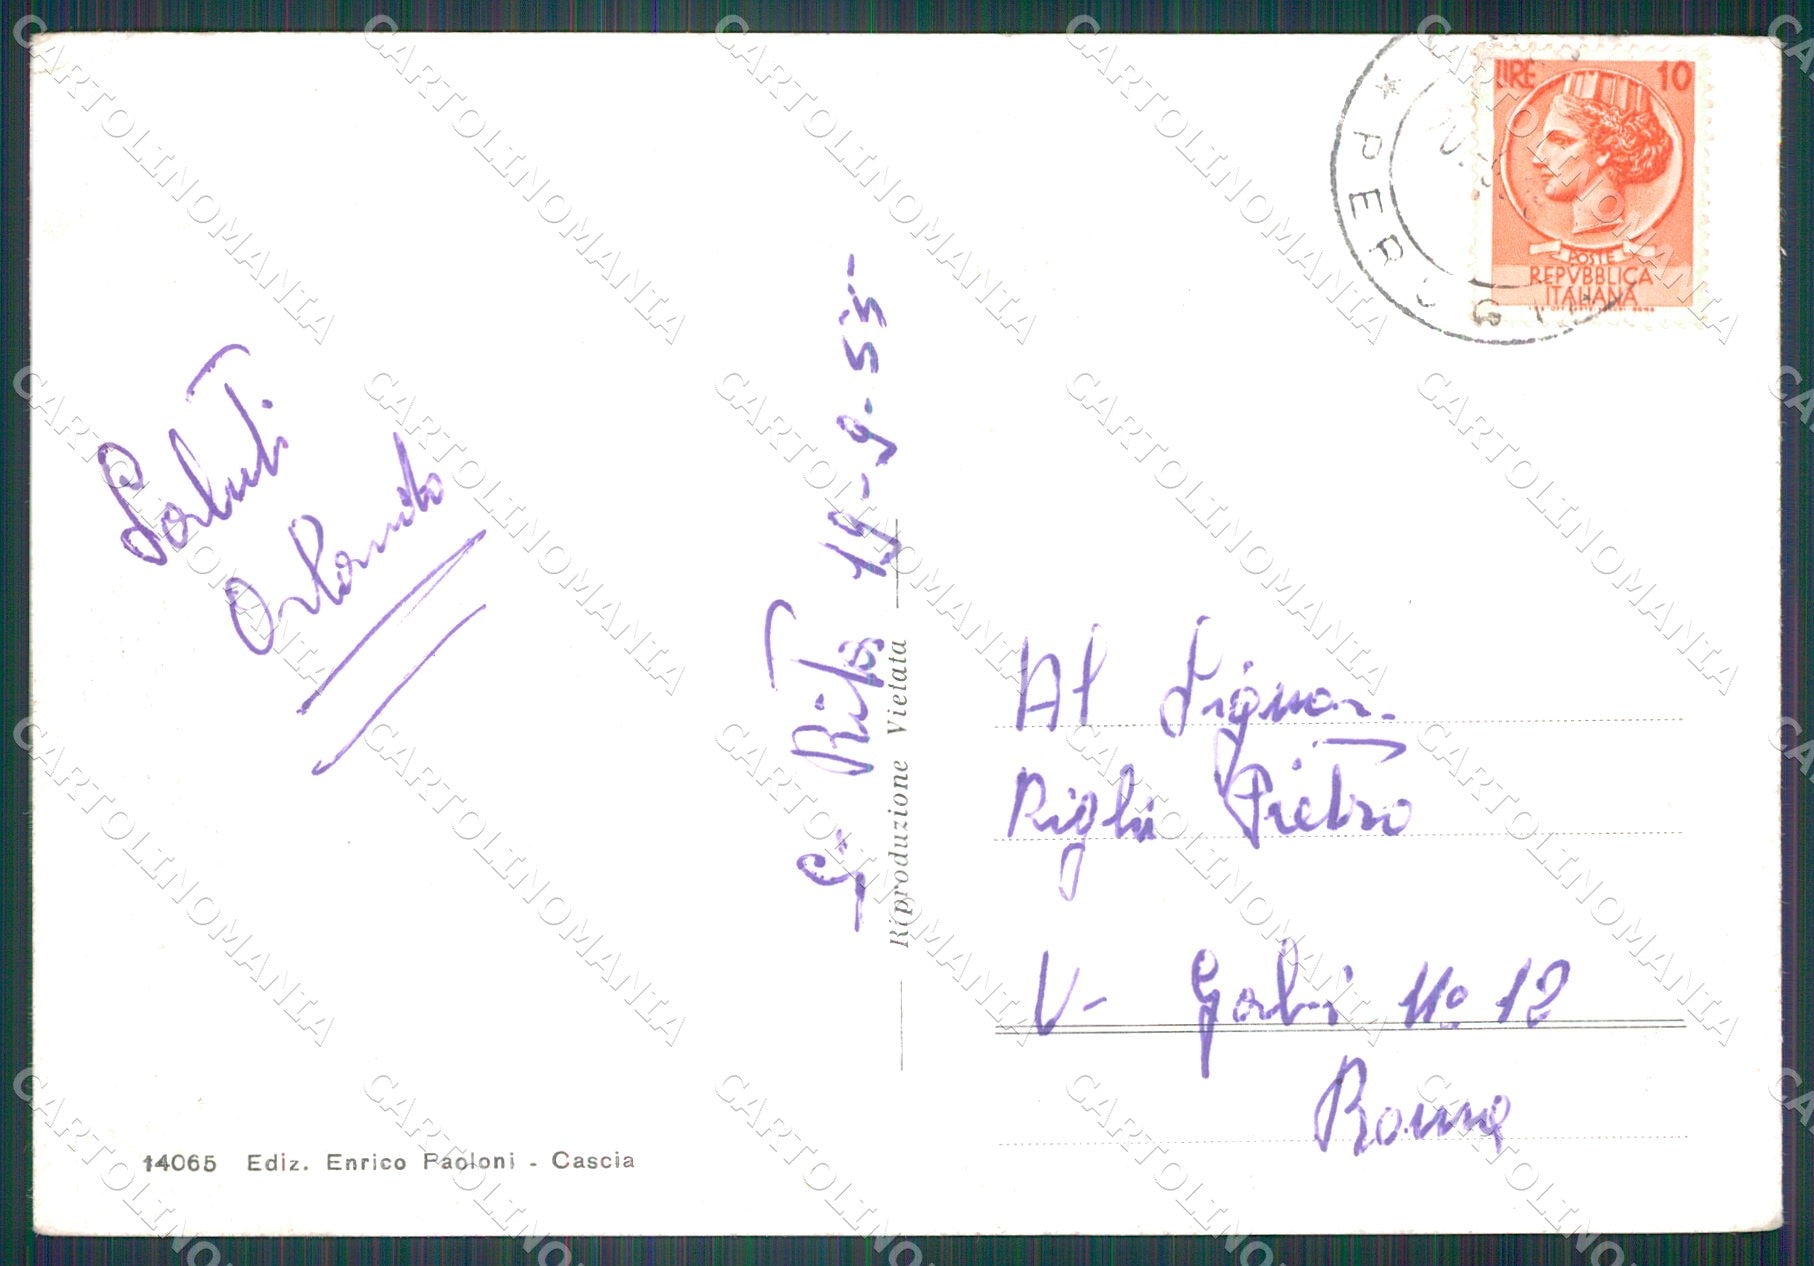 LIRE 10
POSTE
REPVBBLICA
ITALIANA
* PER
Saluti
Orlando
S. Rita 19-9-55-
Riproduzione Vietata
Al Signor.
Righi Pietro
V- Gabi N° 12
Roma
14065 Ediz. Enrico Paoloni - Cascia
CARTOLINOMANIA